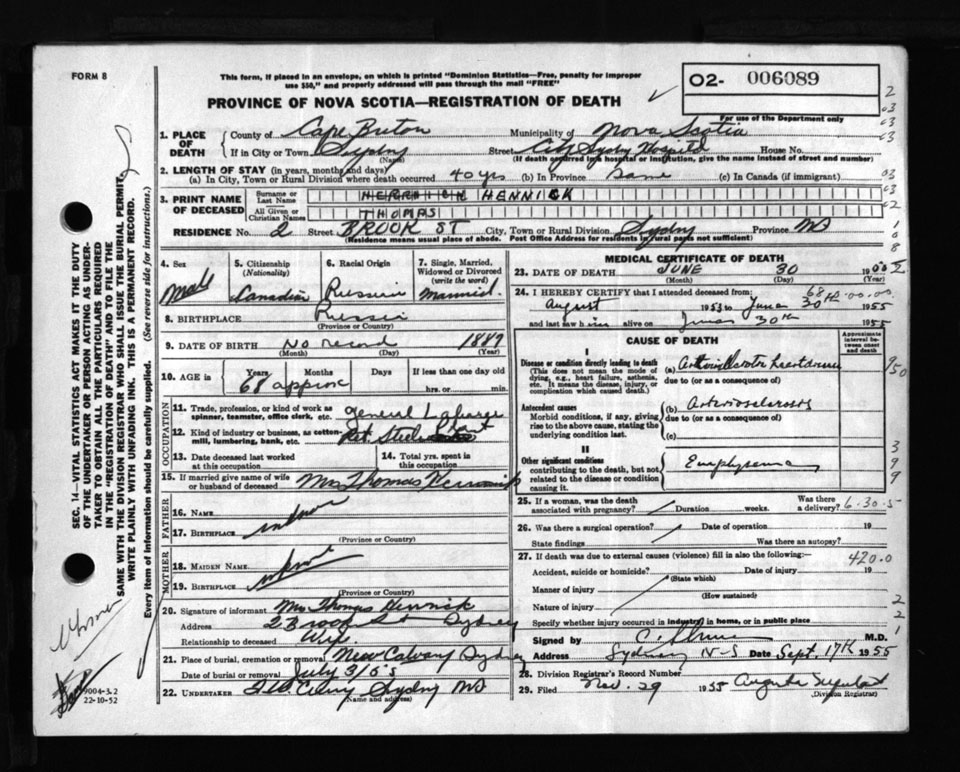 FORM 8
This form, if placed in an envelope, on which is printed "Dominion Statistics—Free, penalty for improper
use $50," and properly addressed will pass through the mail "FREE"
O2- 006089
For use of the Department only
PROVINCE OF NOVA SCOTIA—REGISTRATION OF DEATH
1. PLACE OF DEATH
County of Cape Breton Municipality of Nova Scotia
If in City or Town Sydney Street City Sydny Hospital House No.
(Name) (If death occurred in a hospital or institution, give the name instead of street and number)
2. LENGTH OF STAY (in years, months and days)
(a) In City, Town or Rural Division where death occurred 40 yrs (b) In Province Same (c) In Canada (if immigrant)
3. PRINT NAME OF DECEASED
Surname or Last Name HENNICK
All Given or Christian Names THOMAS
RESIDENCE No. 2 Street BROOK ST City, Town or Rural Division Sydny Province NS
(Residence means usual place of abode. Post Office Address for residents in rural parts not sufficient)
4. Sex Male
5. Citizenship (Nationality) Canadian
6. Racial Origin Russian
7. Single, Married, Widowed or Divorced (write the word) Married
8. BIRTHPLACE Russia
(Province or Country)
9. DATE OF BIRTH No record 1889
(Month) (Day) (Year)
10. AGE in Years Months Days If less than one day old
68 approx hrs. or min.
OCCUPATION
11. Trade, profession, or kind of work as spinner, teamster, office clerk, etc. general Labourer
12. Kind of industry or business, as cotton-mill, lumbering, bank, etc. Ret. Steel Plant
13. Date deceased last worked at this occupation
14. Total yrs. spent in this occupation
15. If married give name of wife or husband of deceased Mrs Thomas Hennick
FATHER
16. NAME
17. BIRTHPLACE unknown
(Province or Country)
MOTHER
18. MAIDEN NAME
19. BIRTHPLACE
(Province or Country)
20. Signature of informant Mrs Thomas Hennick
Address 2 Brook St Sydney
Relationship to deceased Wife
21. Place of burial, cremation or removal New Calvary Sydney
Date of burial or removal July 3/55
22. UNDERTAKER Sydny NS
MEDICAL CERTIFICATE OF DEATH
23. DATE OF DEATH JUNE 30
(Month) (Day)
24. I HEREBY CERTIFY that I attended deceased from: 68-00-00
August 1953 to June 30th 1955
and last saw him alive on June 30th 1955
CAUSE OF DEATH
Approximate interval between onset and death
I
Disease or condition directly leading to death
(This does not mean the mode of dying, e.g., heart failure, asthenia, etc. It means the disease, injury, or complication which caused death.)
(a)
due to (or as a consequence of)
Antecedent causes
Morbid conditions, if any, giving rise to the above cause, stating the underlying condition last.
(b) Arteriosclerosis
due to (or as a consequence of)
(c)
II
Other significant conditions
contributing to the death, but not related to the disease or condition causing it.
Emphysema
25. If a woman, was the death associated with pregnancy? Duration weeks. Was there a delivery? 6-30-5
26. Was there a surgical operation? Date of operation 19
State findings Was there an autopsy?
27. If death was due to external causes (violence) fill in also the following:— 420.0
Accident, suicide or homicide? Date of injury 19
(State which)
Manner of injury
(How sustained)
Nature of injury
Specify whether injury occurred in industry in home, or in public place
Signed by M.D.
Address Sydney N-S Date Sept. 17th 1955
28. Division Registrar's Record Number
29. Filed Nov. 29 1955
(Division Registrar)
SEC. 14—VITAL STATISTICS ACT MAKES IT THE DUTY
OF THE UNDERTAKER OR PERSON ACTING AS UNDER-
TAKER TO OBTAIN ALL THE PARTICULARS REQUIRED
IN THE "REGISTRATION OF DEATH" AND TO FILE THE
SAME WITH THE DIVISION REGISTRAR WHO SHALL ISSUE THE BURIAL PERMIT.
WRITE PLAINLY WITH UNFADING INK. THIS IS A PERMANENT RECORD.
Every item of information should be carefully supplied. (See reverse side for instructions.)
9004-3.2
22-10-52